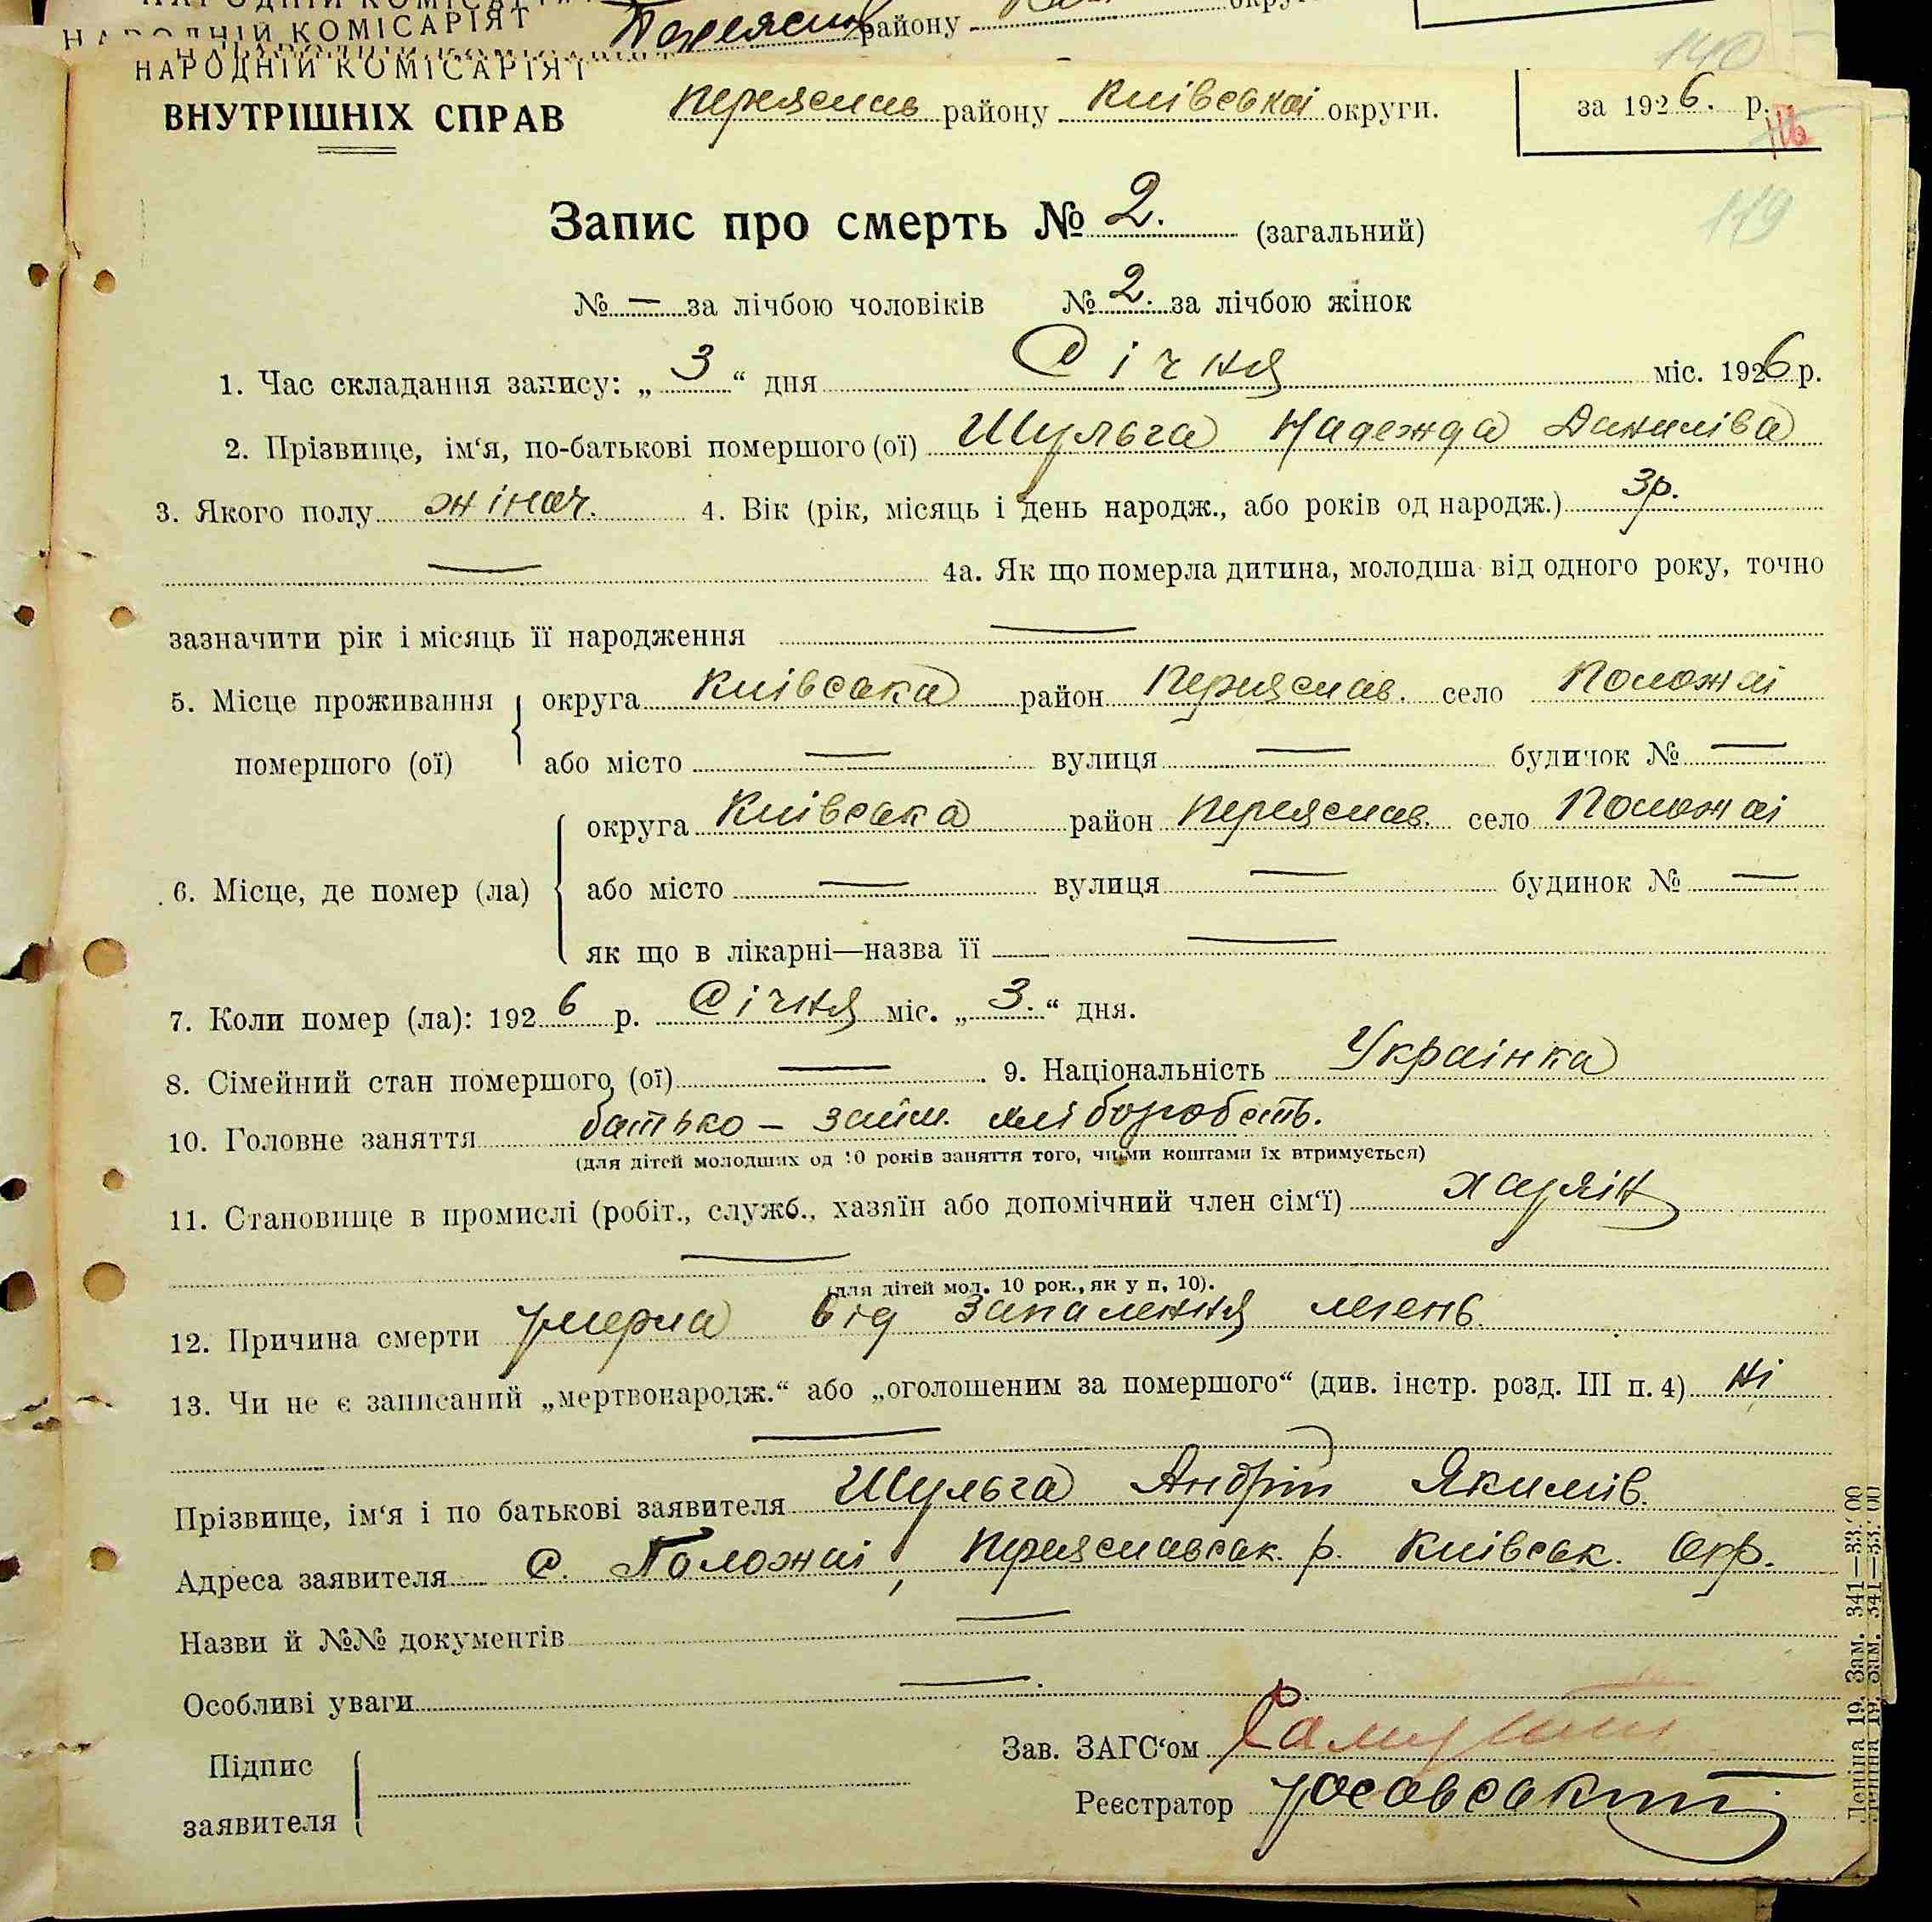 НАРОДНІЙ КОМІСАРІЯТ
району
НАРОДНІЙ КОМІСАРІЯТ
140
ВНУТРІШНІХ СПРАВ
Переяслав району Київської округи.
за 1926. р.
116
119
Запис про смерть № 2. (загальний)
№ — за лічбою чоловіків № 2. за лічбою жінок
1. Час складання запису: „ 3 “ дня Січня міс. 1926 р.
2. Прізвище, ім‘я, по-батькові помершого (ої) Шульга Надежда Данилівa
3. Якого полу жіноч. 4. Вік (рік, місяць і день народж., або років од народж.) 3р.
— 4а. Як що померла дитина, молодша від одного року, точно
зазначити рік і місяць її народження —
5. Місце проживання помершого (ої) округа Київська район Переяслав. село Положаі
або місто — вулиця — будинок № —
6. Місце, де помер (ла) округа Київська район Переяслав. село Положаі
або місто — вулиця — будинок № —
як що в лікарні—назва її —
7. Коли помер (ла): 192 6 р. Січня міс. „ 3. “ дня.
8. Сімейний стан помершого (ої) — 9. Національність Українка
10. Головне заняття батько – займ. хліборобств.
(для дітей молодших од 10 років заняття того, чиїми коштами їх втримується)
11. Становище в промислі (робіт., служб., хазяїн або допомічний член сім‘ї)
—
(для дітей мол. 10 рок., як у п. 10).
12. Причина смерти умерла від запалення легень.
13. Чи не є записаний „мертвонародж.“ або „оголошеним за помершого“ (див. інстр. розд. III п. 4) Ні
—
Прізвище, ім‘я і по батькові заявителя Шульга Андрій Якимів.
Адреса заявителя с. Положаі, Переяславськ. р. Київськ. Окр.
Назви й №№ документів —
Особливі уваги —.
Підпис заявителя
Зав. ЗАГС‘ом
Реєстратор
Леніна 19. Зам. 341—33.000